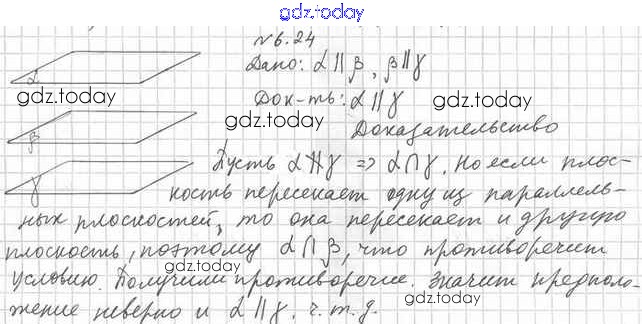 gdz.today
№6.24
Дано: α || β, β || γ
α
gdz.today
Док-ть: α || γ
gdz.today
gdz.today
Доказательство
β
Пусть α ∦ γ => α ∩ γ. Но если плос-
γ
кость пересекает одну из параллель-
ных плоскостей, то она пересекает и другую
плоскость, поэтому α ∩ β, что противоречит
gdz.today
условию. Получили противоречие. Значит предполо-
gdz.today
жение неверно и α || γ. ч.т.д.